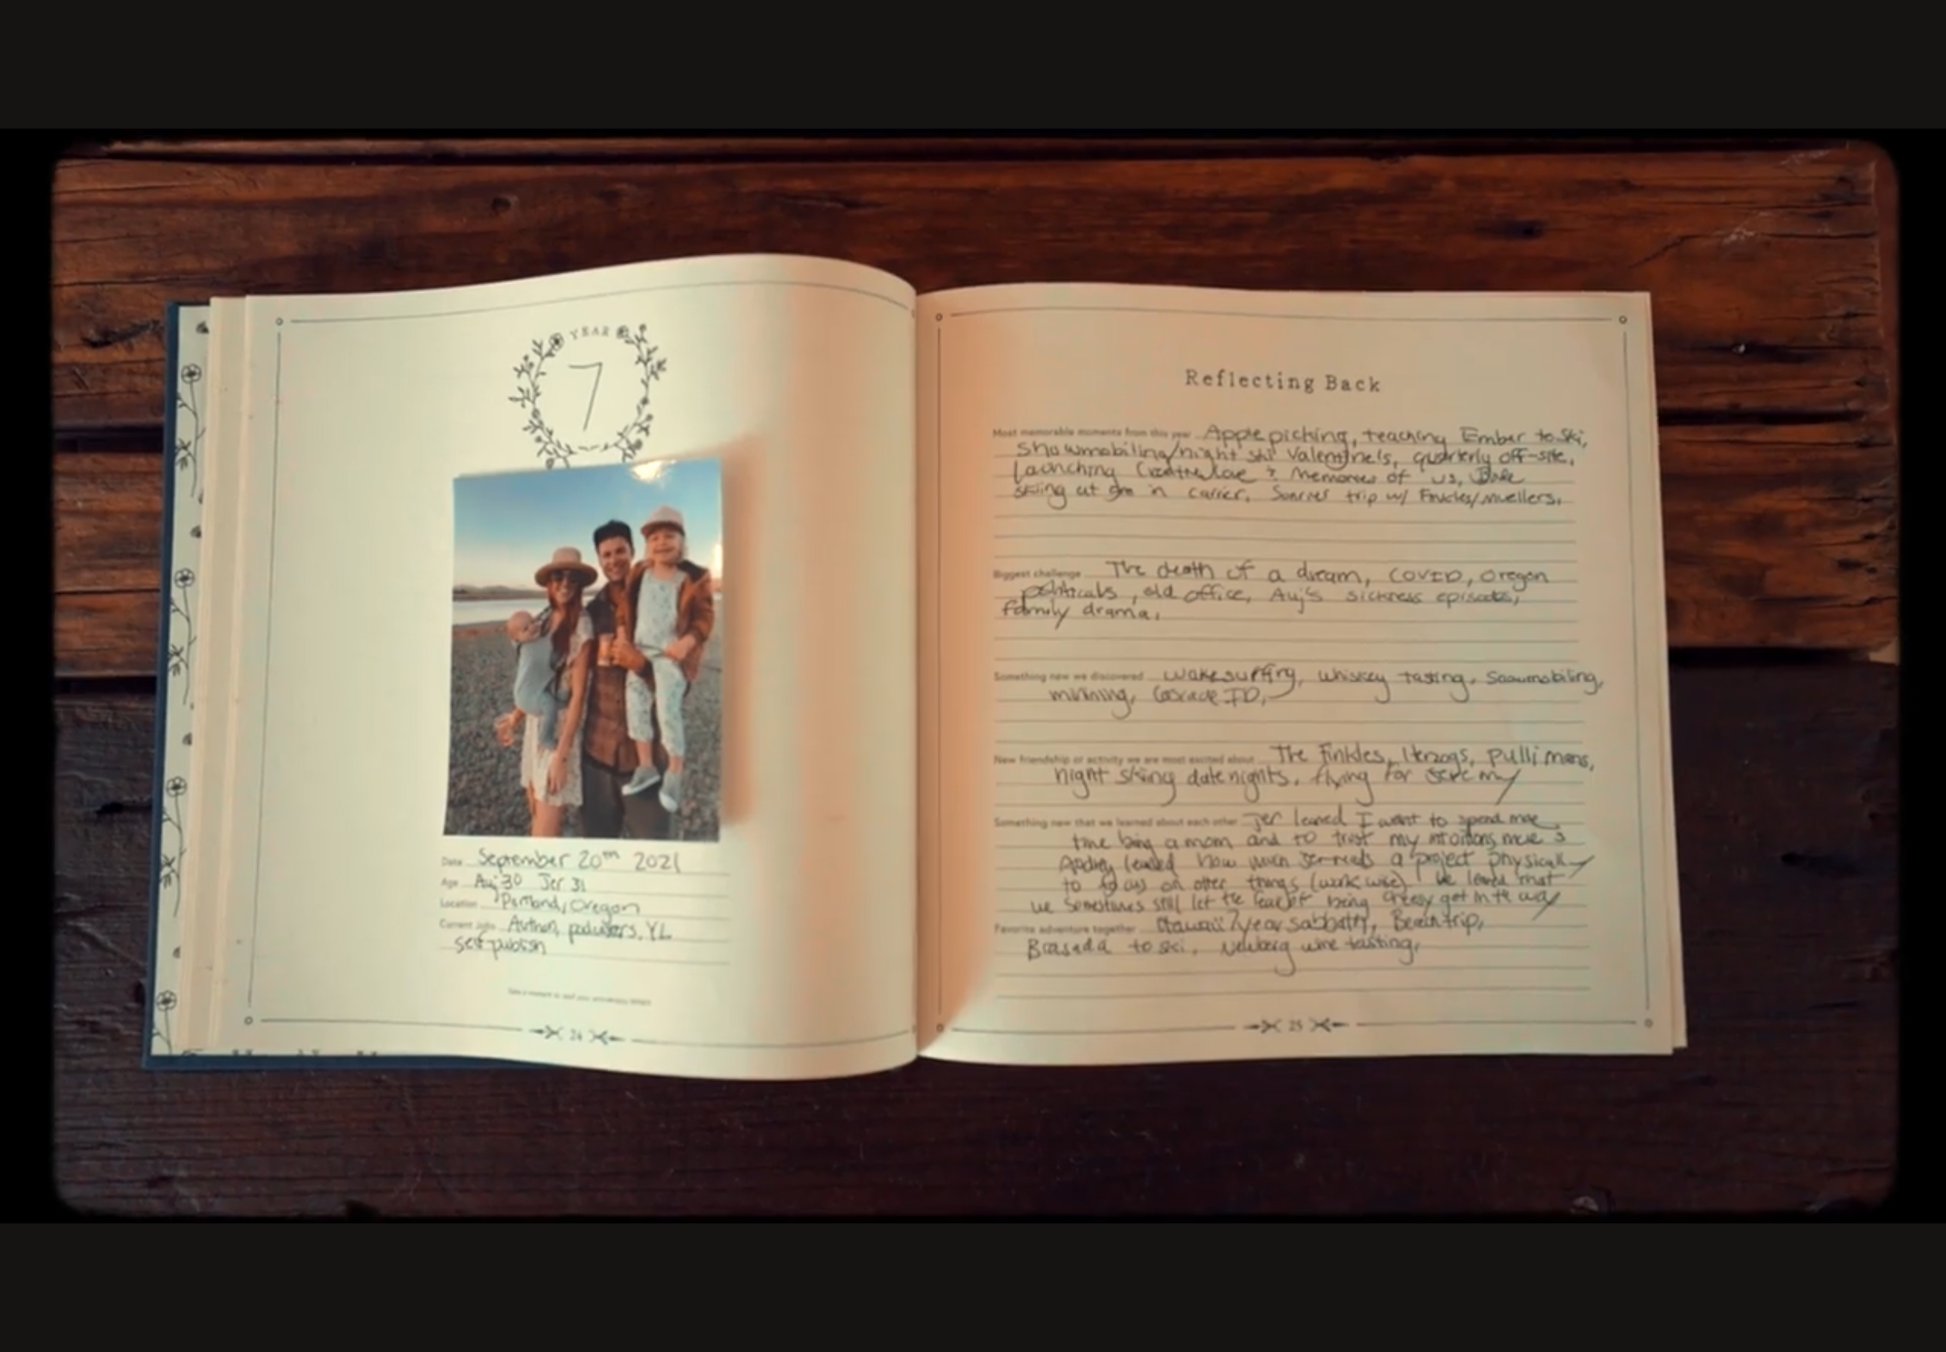 YEAR
7
Date September 20th 2021
Age Auj 30 Jer 31
Location Portland, Oregon
Current Jobs Author, podcasters, YL
self publish
24
Reflecting Back
Most memorable moments from this year Apple picking, teaching Ember to ski,
Snowmobiling/night ski Valentine's, quarterly off-site,
launching & Memories of us,
skiing at in carrier, Summer trip w/ Finkles/Muellers.
Biggest challenge The death of a dream, COVID, Oregon
politicals, old office, Auj's sickness episodes,
family drama,
Something new we discovered wakesurfing, whiskey tasting, Snowmobiling,
mining, Cascade ID,
New friendship or activity we are most excited about The Finkles, Herzogs, Pullimans,
night skiing date nights, flying for Jeremy
Something new that we learned about each other Jer learned I want to spend more
time being a mom and to trust my intuitions more &
Audrey learned how much Jer needs a project physically
to focus on other things (work wise). We learned that
we sometimes still let the fear of being cheesy get in the way
Favorite adventure together Hawaii 7 year sabbath, Beach trip,
Brasada to ski, Newberg wine tasting,
25